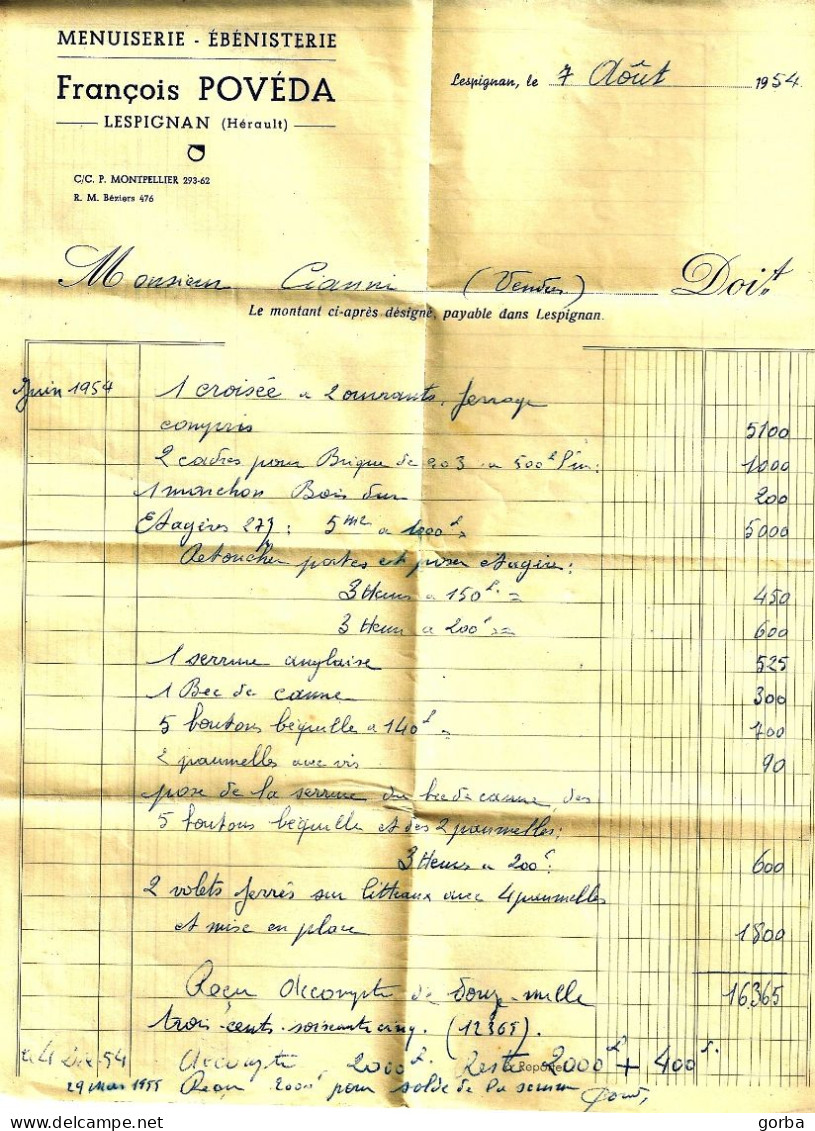 MENUISERIE - ÉBÉNISTERIE
François POVÉDA
LESPIGNAN (Hérault)
C/C. P. MONTPELLIER 293-62
R. M. Béziers 476
Lespignan, le 7 Août 1954
Monsieur Cianni (Vendres) Doit
Le montant ci-après désigné, payable dans Lespignan.
Juin 1954 1 croisée a 2 ouvrants, ferrage
compris 5100
2 cadres pour Brique de 0,03 a 500f l'un: 1000
1 manchon Bois dur 200
Etagères 27 : 5 m2 a 1000f = 5000
Retoucher portes et poser etagère:
3 Heures a 150f. = 450
3 Heures a 200f = 600
1 serrure anglaise 525
1 Bec de canne 300
5 boutons béquille a 140f = 700
2 paumelles avec vis 90
pose de la serrure du bec de canne, des
5 boutons béquille et des 2 paumelles:
3 Heures a 200f: 600
2 volets ferrés sur litteaux avec 4 paumelles
et mise en place 1800
Reçu Accompte de Douze-mille 16365
trois-cents-soixante cinq. (12365).
4 Dec 54 Accompte 2000f. Reste 2000f + 400f.
Reporter
29 mars 1955 Reçu 2000f pour solde de la somme